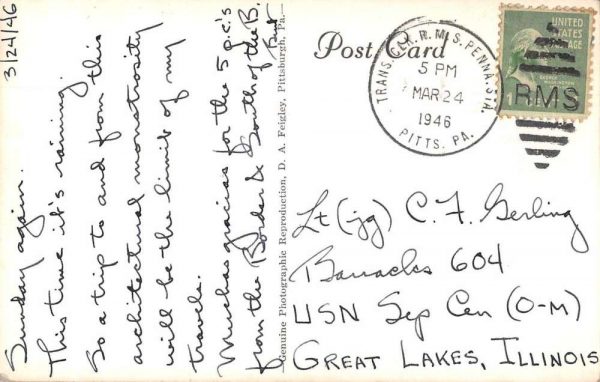 3/24/46
Sunday again.
This time it's raining.
So a trip to and from this
architectural monstrosity
will be the limits of my
travels.
Muchas gracias for the 5 p.c.'s
from the Border & South of the B.
Genuine Photographic Reproduction, D. A. Feigley, Pittsburgh, Pa.
Post Card
TRANS. CLK. R.M.S. PENNA. STA.
5 PM
MAR 24
1946
PITTS. PA.
UNITED
STATES
POSTAGE
RMS
Lt (jg) C. F. Gerling
Barracks 604
USN Sep Cen (O-M)
GREAT LAKES, ILLINOIS